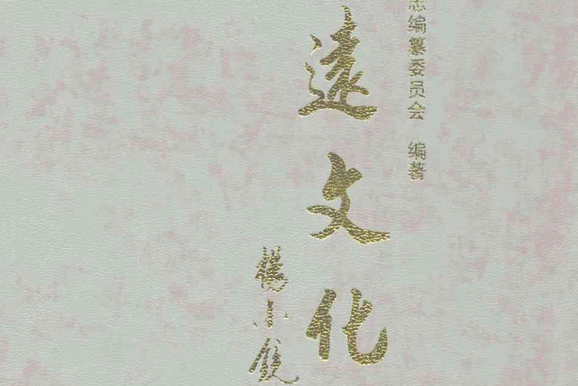 志编纂委员会 编著
遠文化